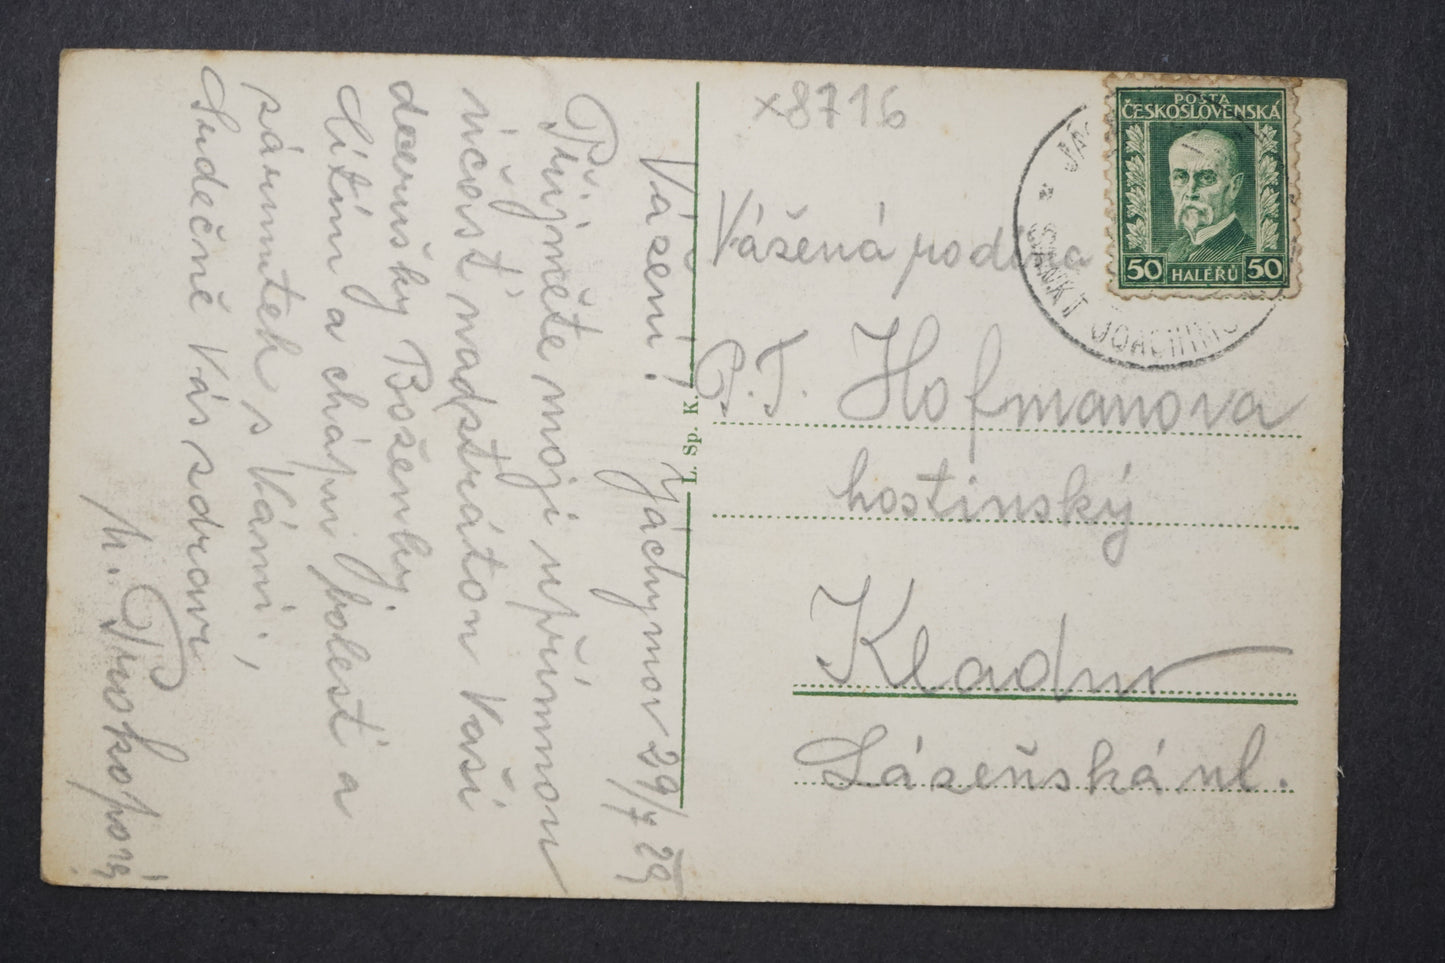 x8716
POŠTA
ČESKOSLOVENSKÁ
50 HALÉŘŮ 50
SANKT JOACHIMS
Vážená rodina
P.T. Hofmanova
hostinský
Kladno
Lázeňská ul.
L. Sp. K.
Jáchymov 29/7 29
Vázení!
Přijměte moji upřímnou
účast nad ztrátou Vaší
dcerušky Boženky
Cítím a chápu bolest a
zármutek s Vámi,
Srdečně Vás zdraví
Prokopová